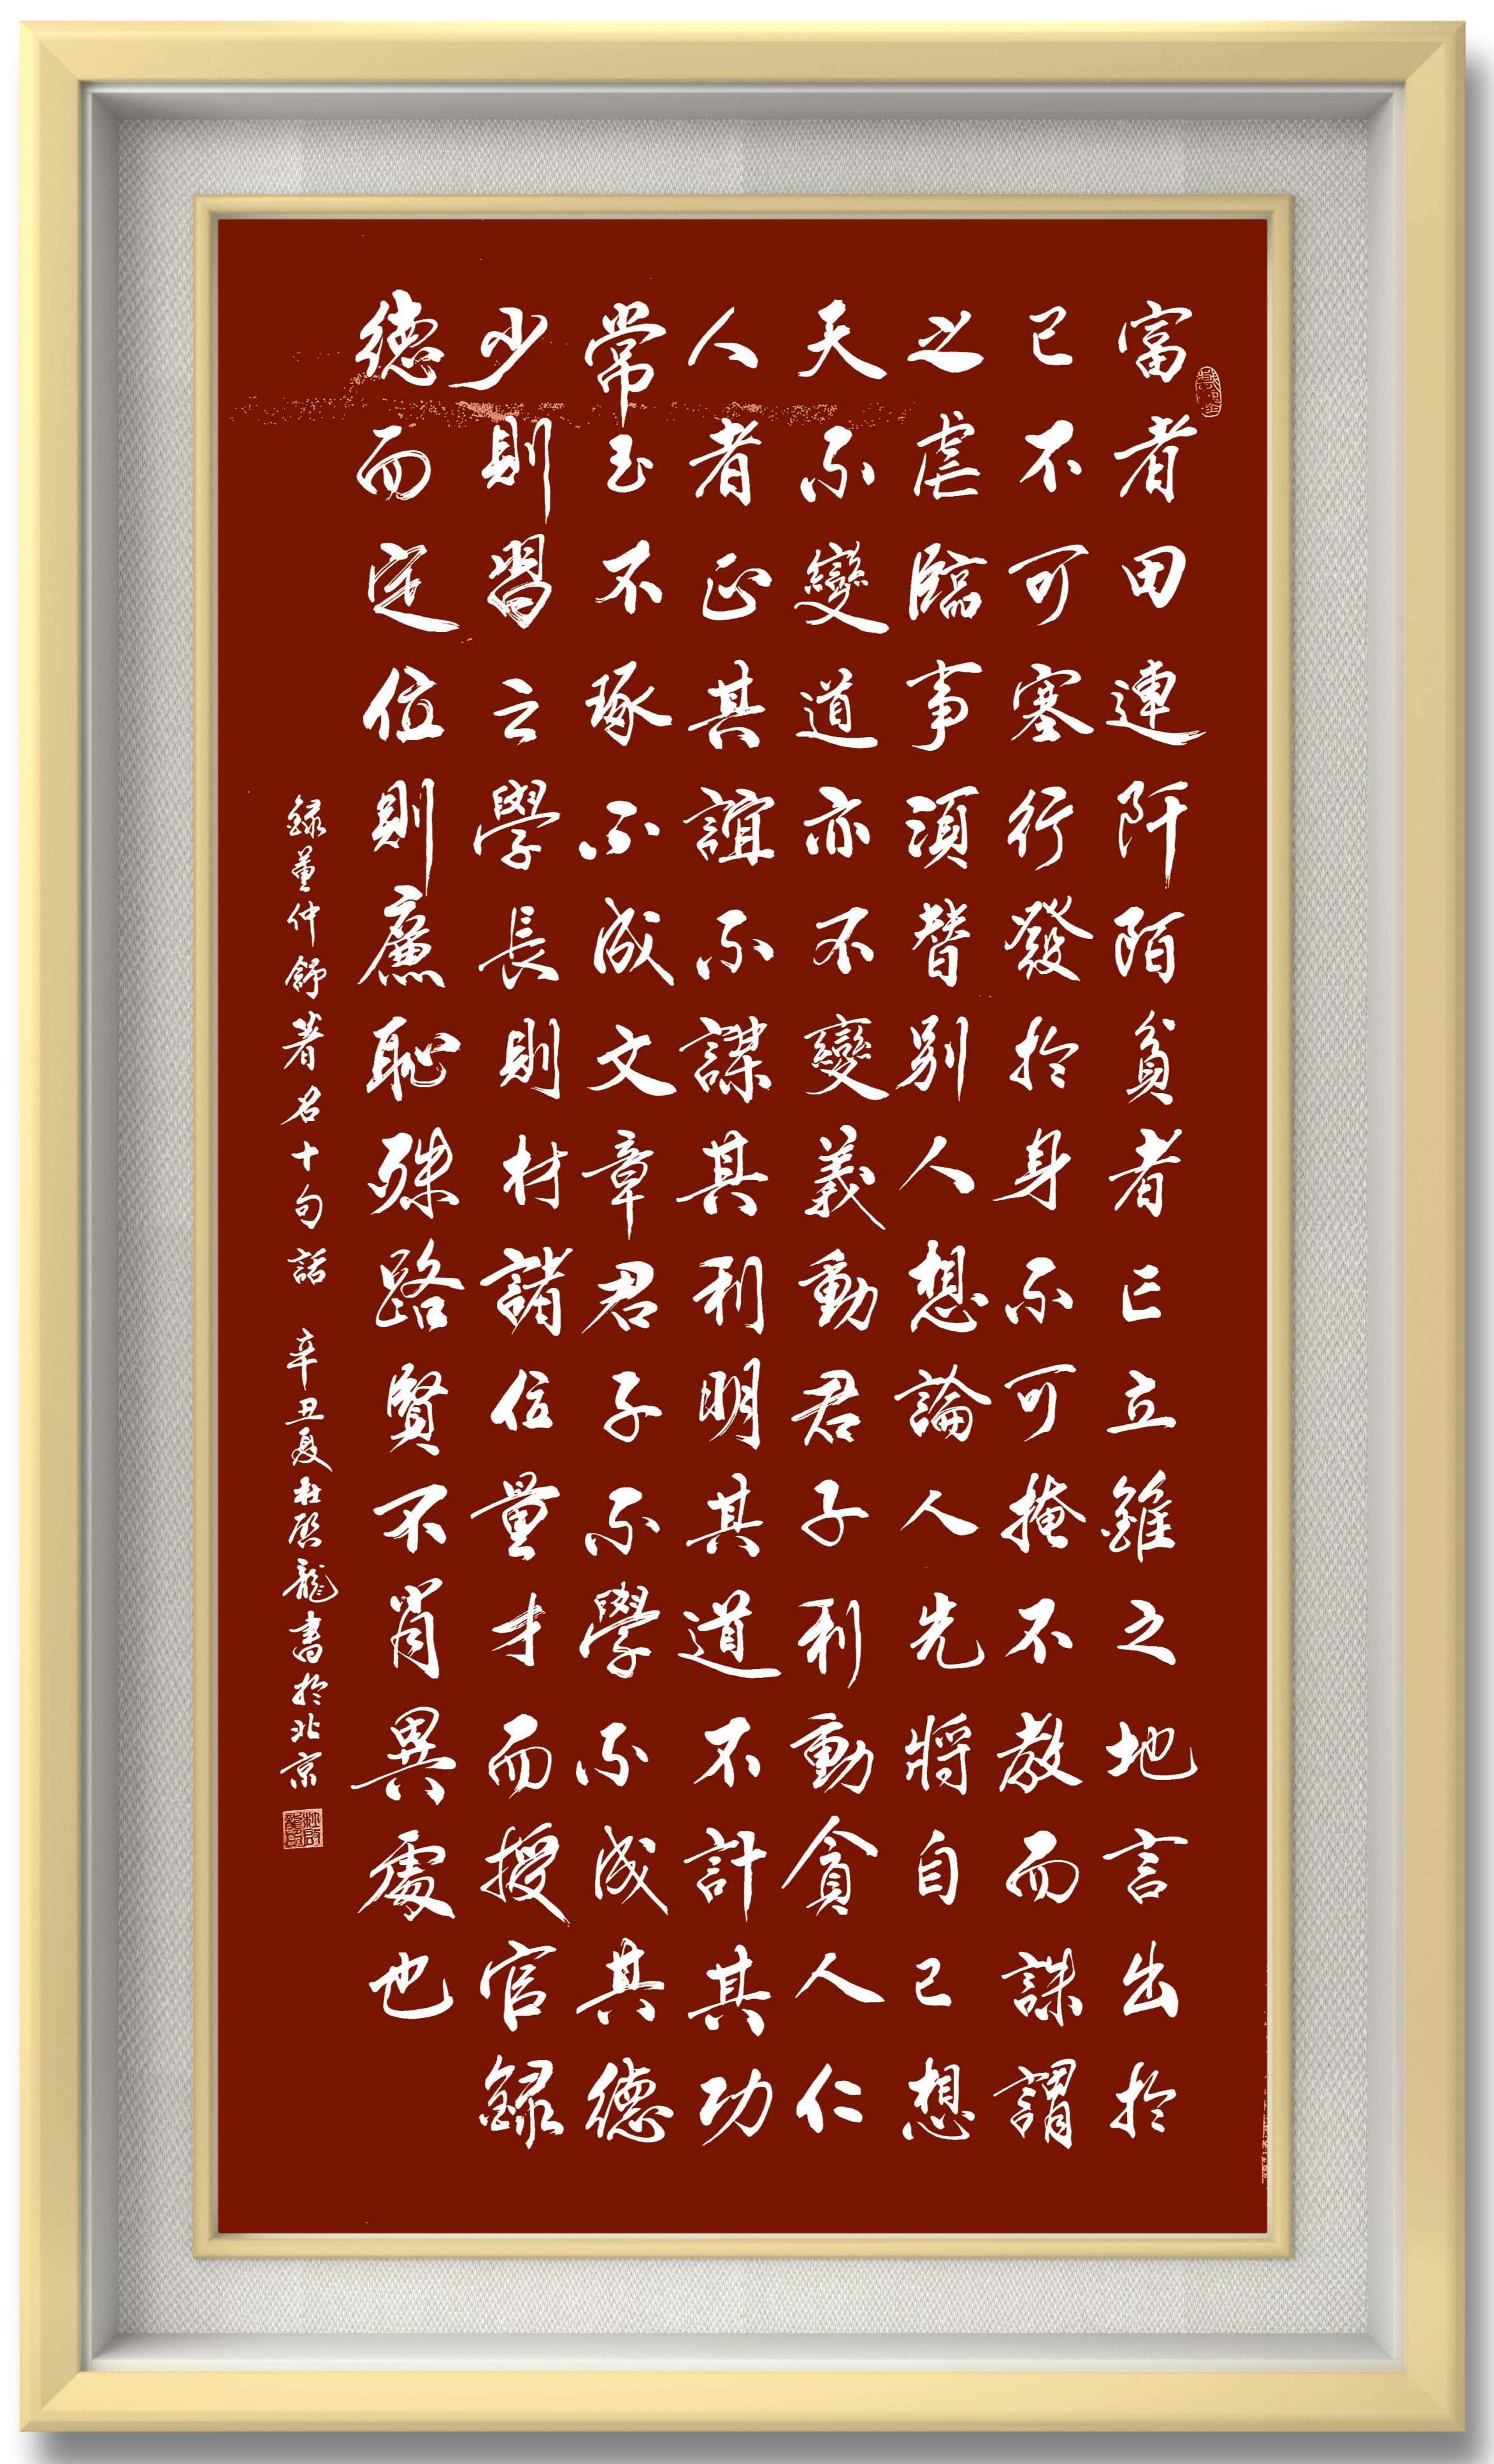 富者田連阡陌貧者亡立錐之地言出於
己不可塞行發於身不可掩不教而誅謂
之虐臨事須替別人想論人先將自己想
天不變道亦不變義動君子利動貪人仁
人者正其誼不謀其利明其道不計其功
常玉不琢不成文章君子不學不成其德
少則習之學長則材諸位量才而授官録
德而定位則廉恥殊路賢不肖異處也
録董仲舒著名十句話 辛丑夏杜啟龍書於北京